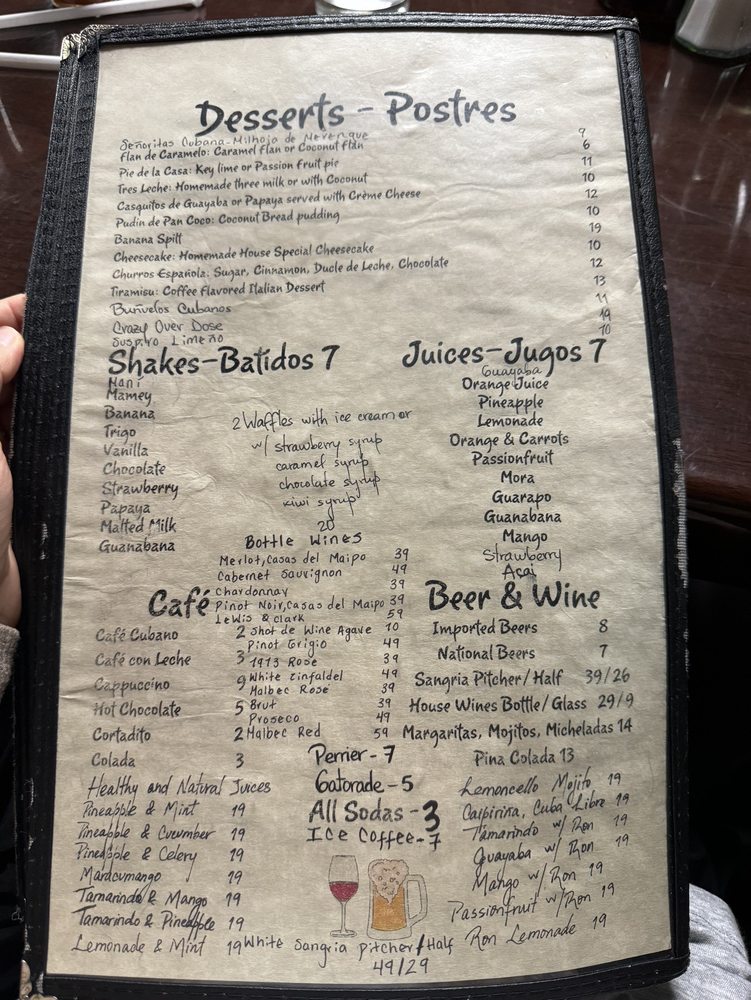 Desserts - Postres
Señoritas Cubana-Milhoja de Merengue 9
Flan de Caramelo: Caramel flan or Coconut flan 6
Pie de la Casa: Key lime or Passion fruit pie 11
Tres Leche: Homemade three milk or with Coconut 10
Casquitos de Guayaba or Papaya served with Crème Cheese 12
Pudin de Pan Coco: Coconut Bread pudding 10
Banana Spilt 19
Cheesecake: Homemade House Special Cheesecake 10
Churros Española: Sugar, Cinnamon, Ducle de Leche, Chocolate 12
Tiramisu: Coffee flavored Italian Dessert 13
Buñuelos Cubanos 11
Crazy Over Dose 19
Suspiro Limeño 10
Shakes-Batidos 7
Mani
Mamey
Banana
Trigo
Vanilla
Chocolate
Strawberry
Papaya
Malted Milk
Guanabana
2 Waffles with ice cream or
w/ strawberry syrup
caramel syrup
chocolate syrup
kiwi syrup
20
Juices-Jugos 7
Guayaba
Orange Juice
Pineapple
Lemonade
Orange & Carrots
Passionfruit
Mora
Guarapo
Guanabana
Mango
Strawberry
Açai
Bottle Wines
Merlot,Casas del Maipo 39
Cabernet Sauvignon 49
Chardonnay 39
Pinot Noir,Casas del Maipo 39
Lewis & Clark 59
Shot de Wine Agave 10
Pinot Grigio 49
1913 Rose 39
White Zinfaldel 49
Malbec Rose 39
Brut 39
Proseco 49
Malbec Red 59
Café
Café Cubano 2
Café con Leche 3
Cappuccino 9
Hot Chocolate 5
Cortadito 2
Colada 3
Beer & Wine
Imported Beers 8
National Beers 7
Sangria Pitcher/Half 39/26
House Wines Bottle/Glass 29/9
Margaritas, Mojitos, Micheladas 14
Pina Colada 13
Perrier - 7
Gatorade - 5
All Sodas - 3
Ice Coffee - 7
Healthy and Natural Juices
Pineapple & Mint 19
Pineapple & Cucumber 19
Pineapple & Celery 19
Maracumango 19
Tamarindo & Mango 19
Tamarindo & Pineapple 19
Lemonade & Mint 19
Lemoncello Mojito 19
Caipirina, Cuba Libre 19
Tamarindo w/ Ron 19
Guayaba w/ Ron 19
Mango w/ Ron 19
Passionfruit w/ Ron 19
Ron Lemonade 19
White Sangria Pitcher/Half
49/29